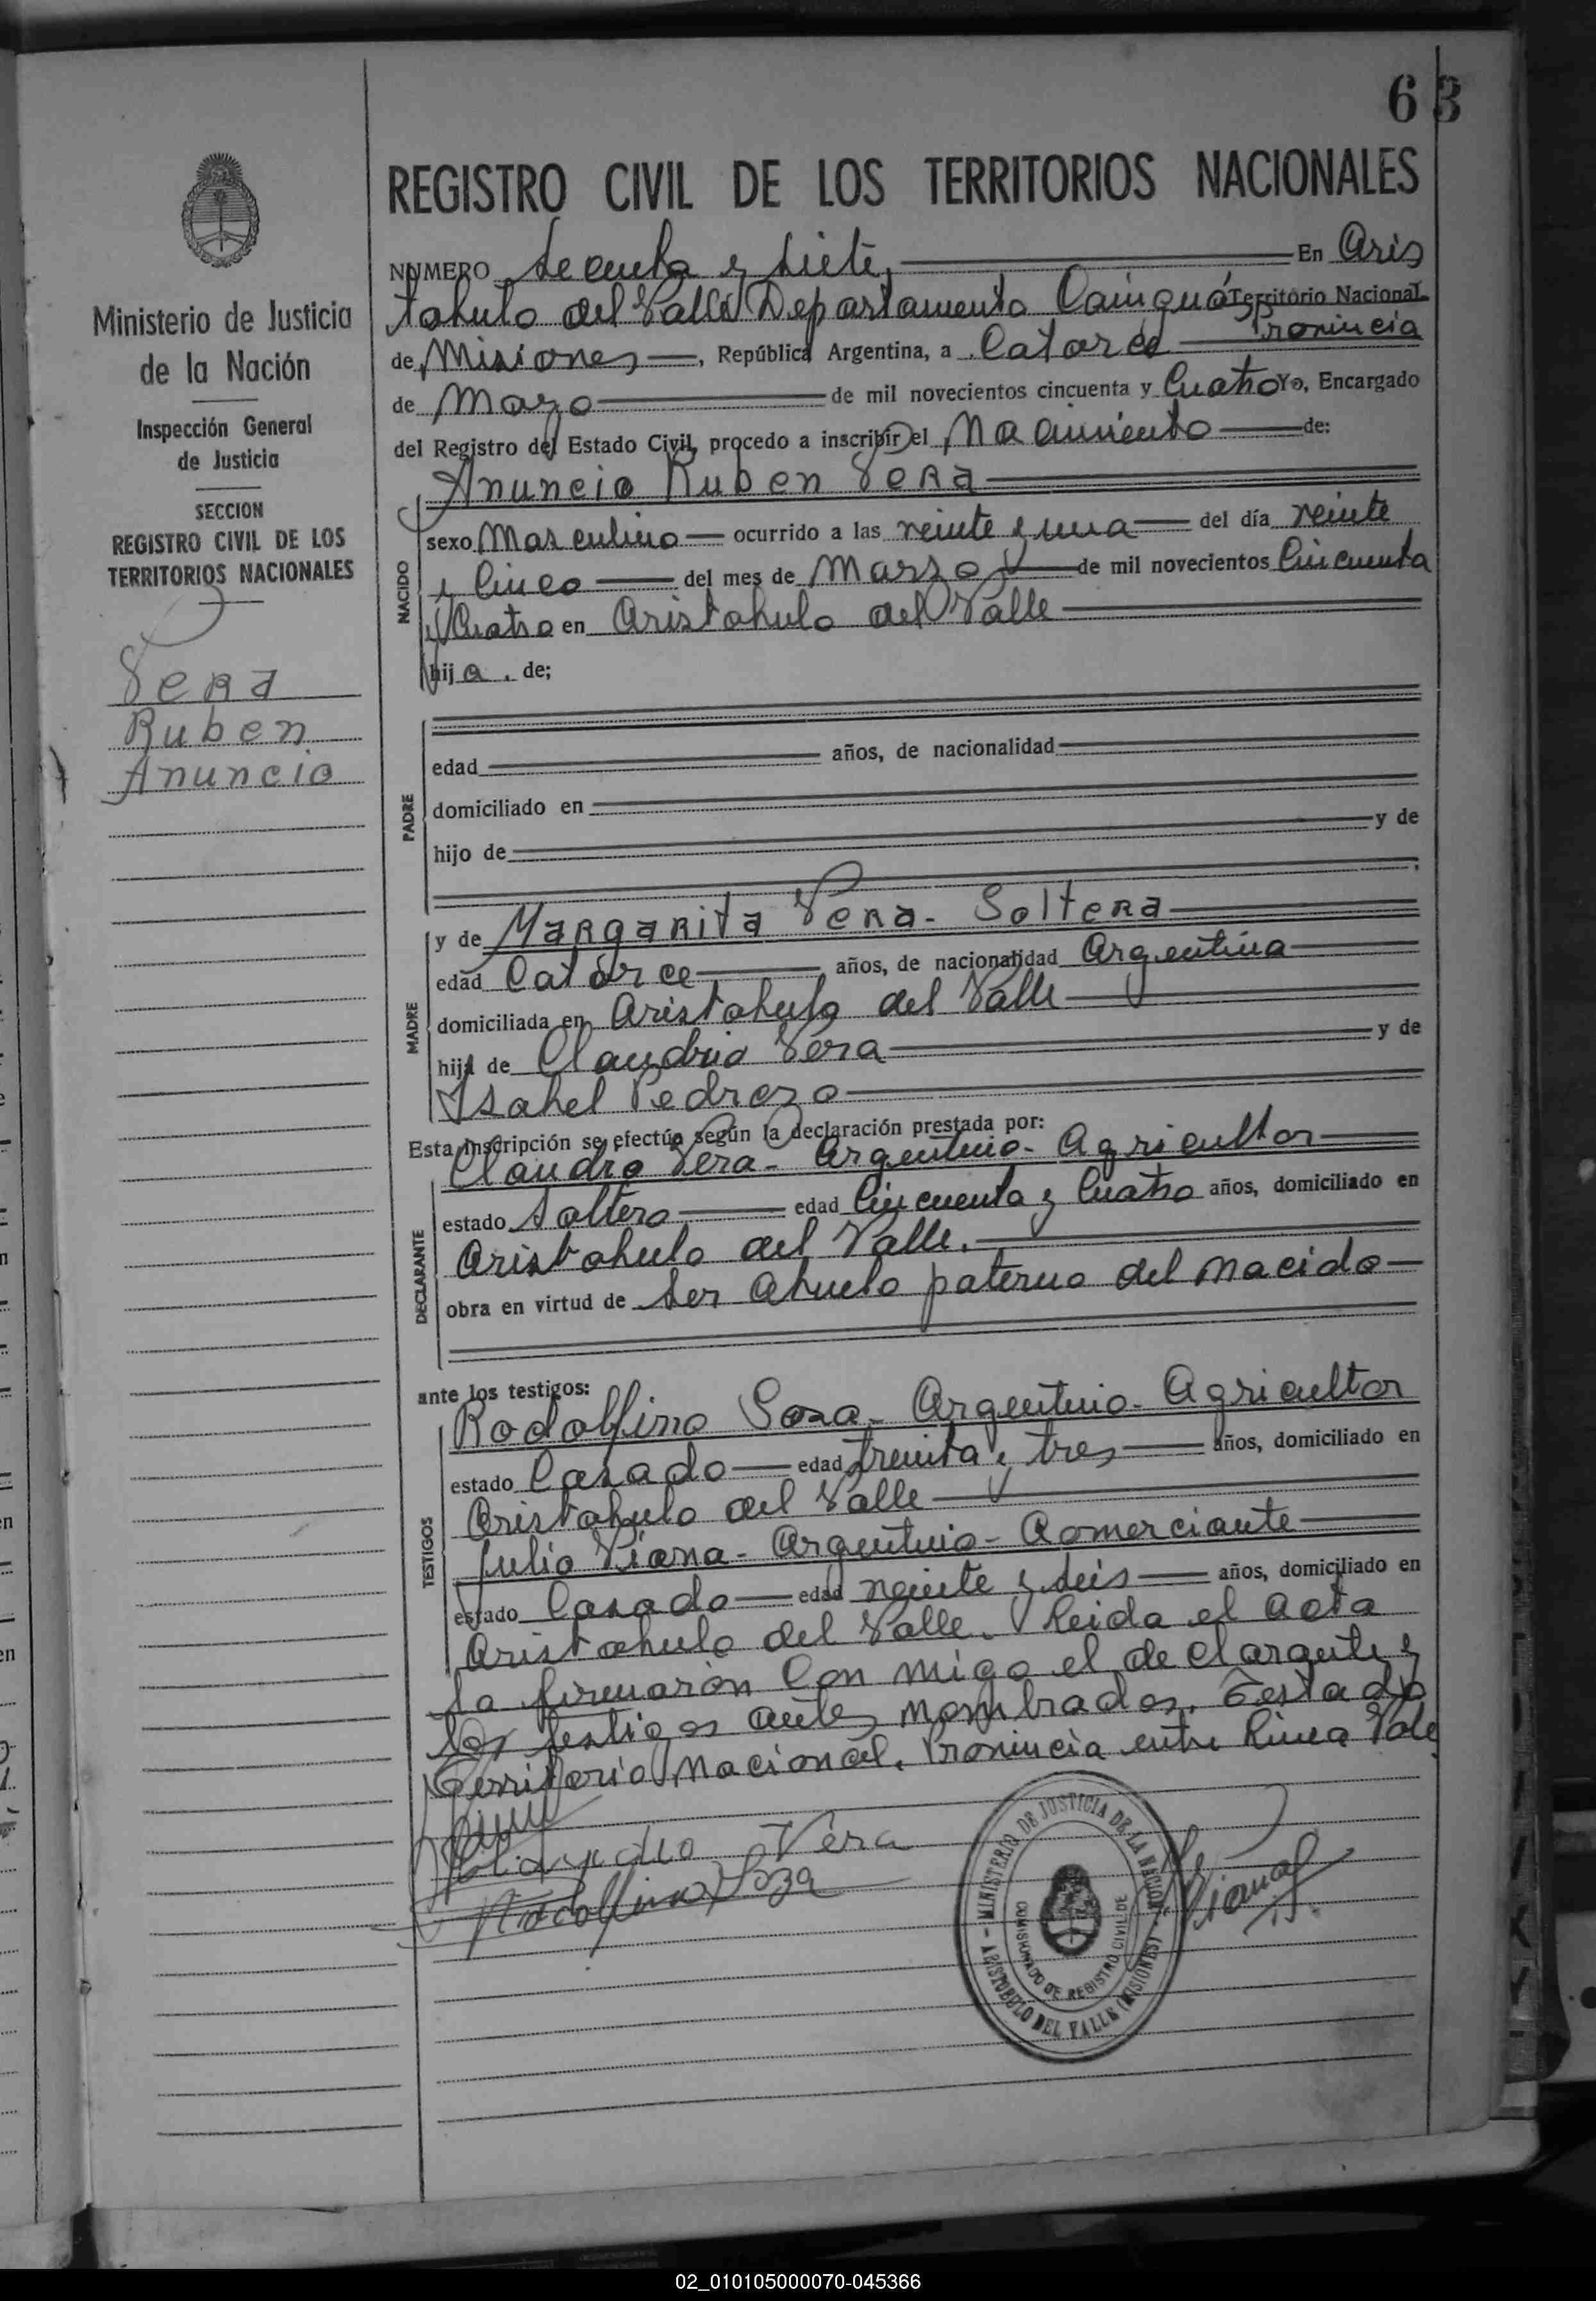 63
REGISTRO CIVIL DE LOS TERRITORIOS NACIONALES
Ministerio de Justicia
de la Nación
Inspección General
de Justicia
SECCION
REGISTRO CIVIL DE LOS
TERRITORIOS NACIONALES
Vera
Ruben
Anuncio
NUMERO Secenta y Siete, En Aris
tobulo del Valle Departamento Cainguás Territorio Nacional
Provincia
de Misiones, República Argentina, a Catorce
de Mayo de mil novecientos cincuenta y Cuatro Yo, Encargado
del Registro del Estado Civil, procedo a inscribir el Nacimiento de:
Anuncio Ruben Vera
NACIDO
sexo Masculino ocurrido a las veinte y una del día veinte
y Cinco del mes de Marzo de mil novecientos Cincuenta
y Cuatro en Aristobulo del Valle
hijo. de;
PADRE
edad años, de nacionalidad
domiciliado en
hijo de y de
MADRE
y de Margarita Vera - Soltera
edad Catorce años, de nacionalidad Argentina
domiciliada en Aristobulo del Valle
hija de Claudio Vera y de
Isabel Pedrozo
Esta inscripción se efectúa según la declaración prestada por:
DECLARANTE
Claudio Vera - Argentino - Agricultor
estado Soltero edad Cincuenta y Cuatro años, domiciliado en
Aristobulo del Valle.
obra en virtud de Ser Abuelo paterno del nacido
ante los testigos:
TESTIGOS
Rodolfino Sosa - Argentino - Agricultor
estado Casado edad treinta y tres años, domiciliado en
Aristobulo del Valle
Julio Viana - Argentino - Comerciante
estado Casado edad veinte y seis años, domiciliado en
Aristobulo del Valle. Leida el Acta
la firmarón Con migo el declarante y
los testigos antes nombrados. Testado
Territorio Nacional. Provincia entre linea Vale
Claudio Vera
Rodolfino Soza
Viana
MINISTERIO DE JUSTICIA DE LA NACION
COMISIONADO DE REGISTRO CIVIL DE
ARISTOBULO DEL VALLE (MISIONES)
02_010105000070-045366